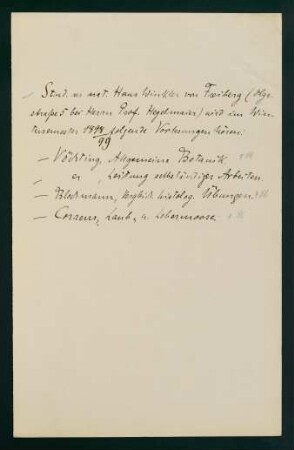 Stud. rer. nat. Hans Winkler von Freiberg (Olga-
strasse 5 bei Herrn Prof. Hegelmaier) wird im Win-
tersemester 1898/99 folgende Vorlesungen hören:
— Vöchting, Allgemeine Botanik.
— er, Leitung selbständiger Arbeiten.
— Blochmann, Vergleich. histolog. Übungen.
— Correns, Laub- u. Lebermoose.